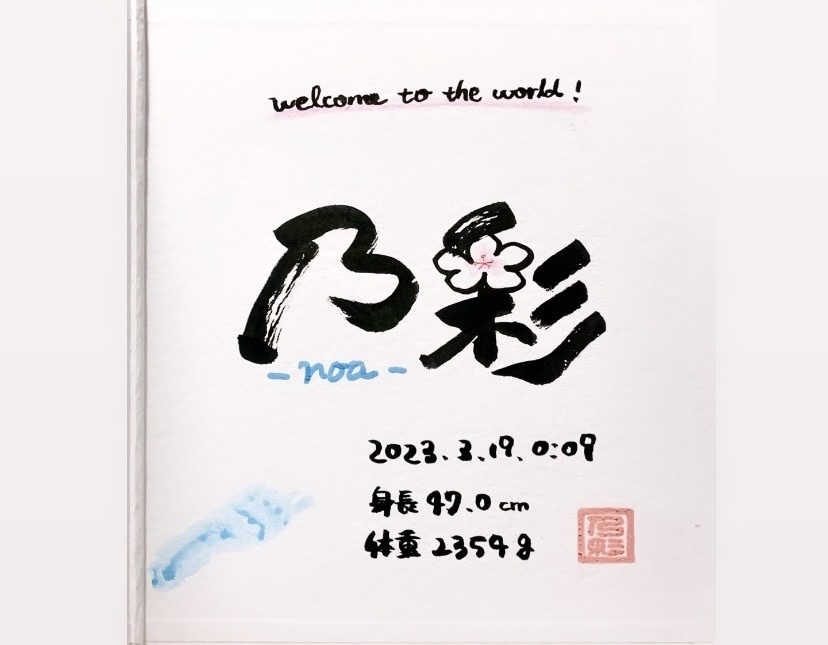 welcome to the world!
乃彩
- noa -
2023.3.19.0:09
身長 47.0 cm
体重 2354g
乃彩